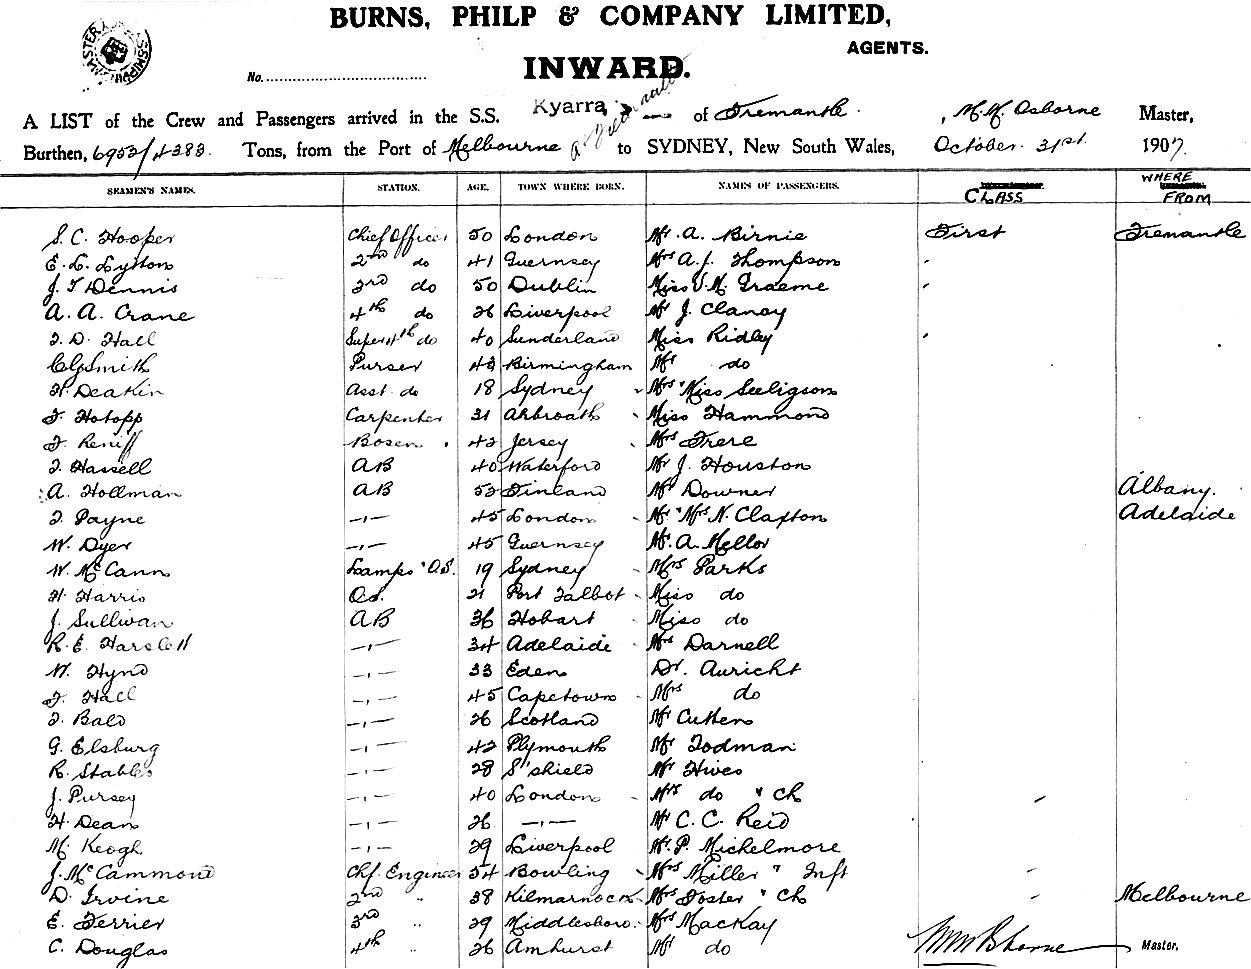 BURNS, PHILP & COMPANY LIMITED,
AGENTS.
INWARD.
No.
A LIST of the Crew and Passengers arrived in the S.S. Kyarra of Fremantle, M.M. Osborne Master,
Burthen, 6953/4383 Tons, from the Port of Melbourne to SYDNEY, New South Wales, October 31st 1907.
SEAMEN'S NAMES. STATION. AGE. TOWN WHERE BORN. NAMES OF PASSENGERS. CLASS WHERE FROM
S. C. Hooper Chief Officer 50 London Mr. A. Birnie First Fremantle
E. L. Lyston 2nd do 41 Guernsey Mrs A. J. Thompson
J. T Dennis 3rd do 50 Dublin Miss V. M. Graeme
A. A. Crane 4th do 26 Liverpool Mr J. Clancy
F. D. Hall Super 4th do 40 Sunderland Miss Ridley
Smith Purser 43 Birmingham do
H. Deakin Asst. do 18 Sydney Mrs " Miss Seeligson
F. Hotopp Carpenter 31 Arbroath Miss Hammond
F. Reniff Bosen 42 Jersey Mrs Frere
F. Hassell AB 40 Waterford Mr J. Houston
A. Hollman AB 53 Finland Mr Downer Albany.
F. Payne -,- 45 London Mr " Mrs N. Clapton Adelaide
W. Dyer -,- 45 Guernsey Mr. A. Mellor
W. McCann Lamps " O.S. 19 Sydney Mrs Parks
H. Harris O.S. 21 Port Talbot Miss do
J. Sullivan AB 36 Hobart Miss do
R. E. Harslett -,- 34 Adelaide Mrs Darnell
W. Hynd -,- 33 Eden Dr. Auricht
F. Hall -,- 45 Capetown Mrs do
F. Bald -,- 26 Scotland Mr Cutten
G. Elsburg -,- 42 Plymouth Mr Todman
R. Stables -,- 28 S'shield Mr Hives
J. Pursey -,- 40 London Mrs do " Ch
H. Dean -,- 26 -,- Mr C. C. Reid
M. Keogh -,- 29 Liverpool Mr. P. Michelmore
J. McCammond Chf. Engineer 54 Bowling Mrs Miller " Inft
D. Irvine 2nd " 38 Kilmarnock Mrs Foster " Ch Melbourne
E. Ferrier 3rd " 29 Middlesboro. Mrs MacKay
C. Douglas 4th " 26 Amhurst Mr do MM Osborne Master.